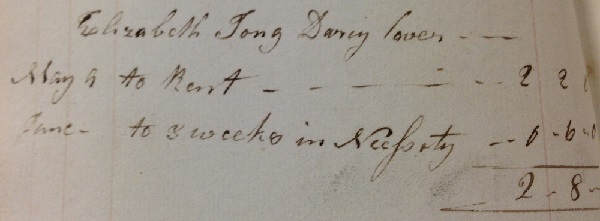 Elizabeth Tong Darcy lover
May 9 to Rent - - - - 2 2 0
June - to 3 weeks in Nessety - - 0 - 6 - 0
2 - 8 -